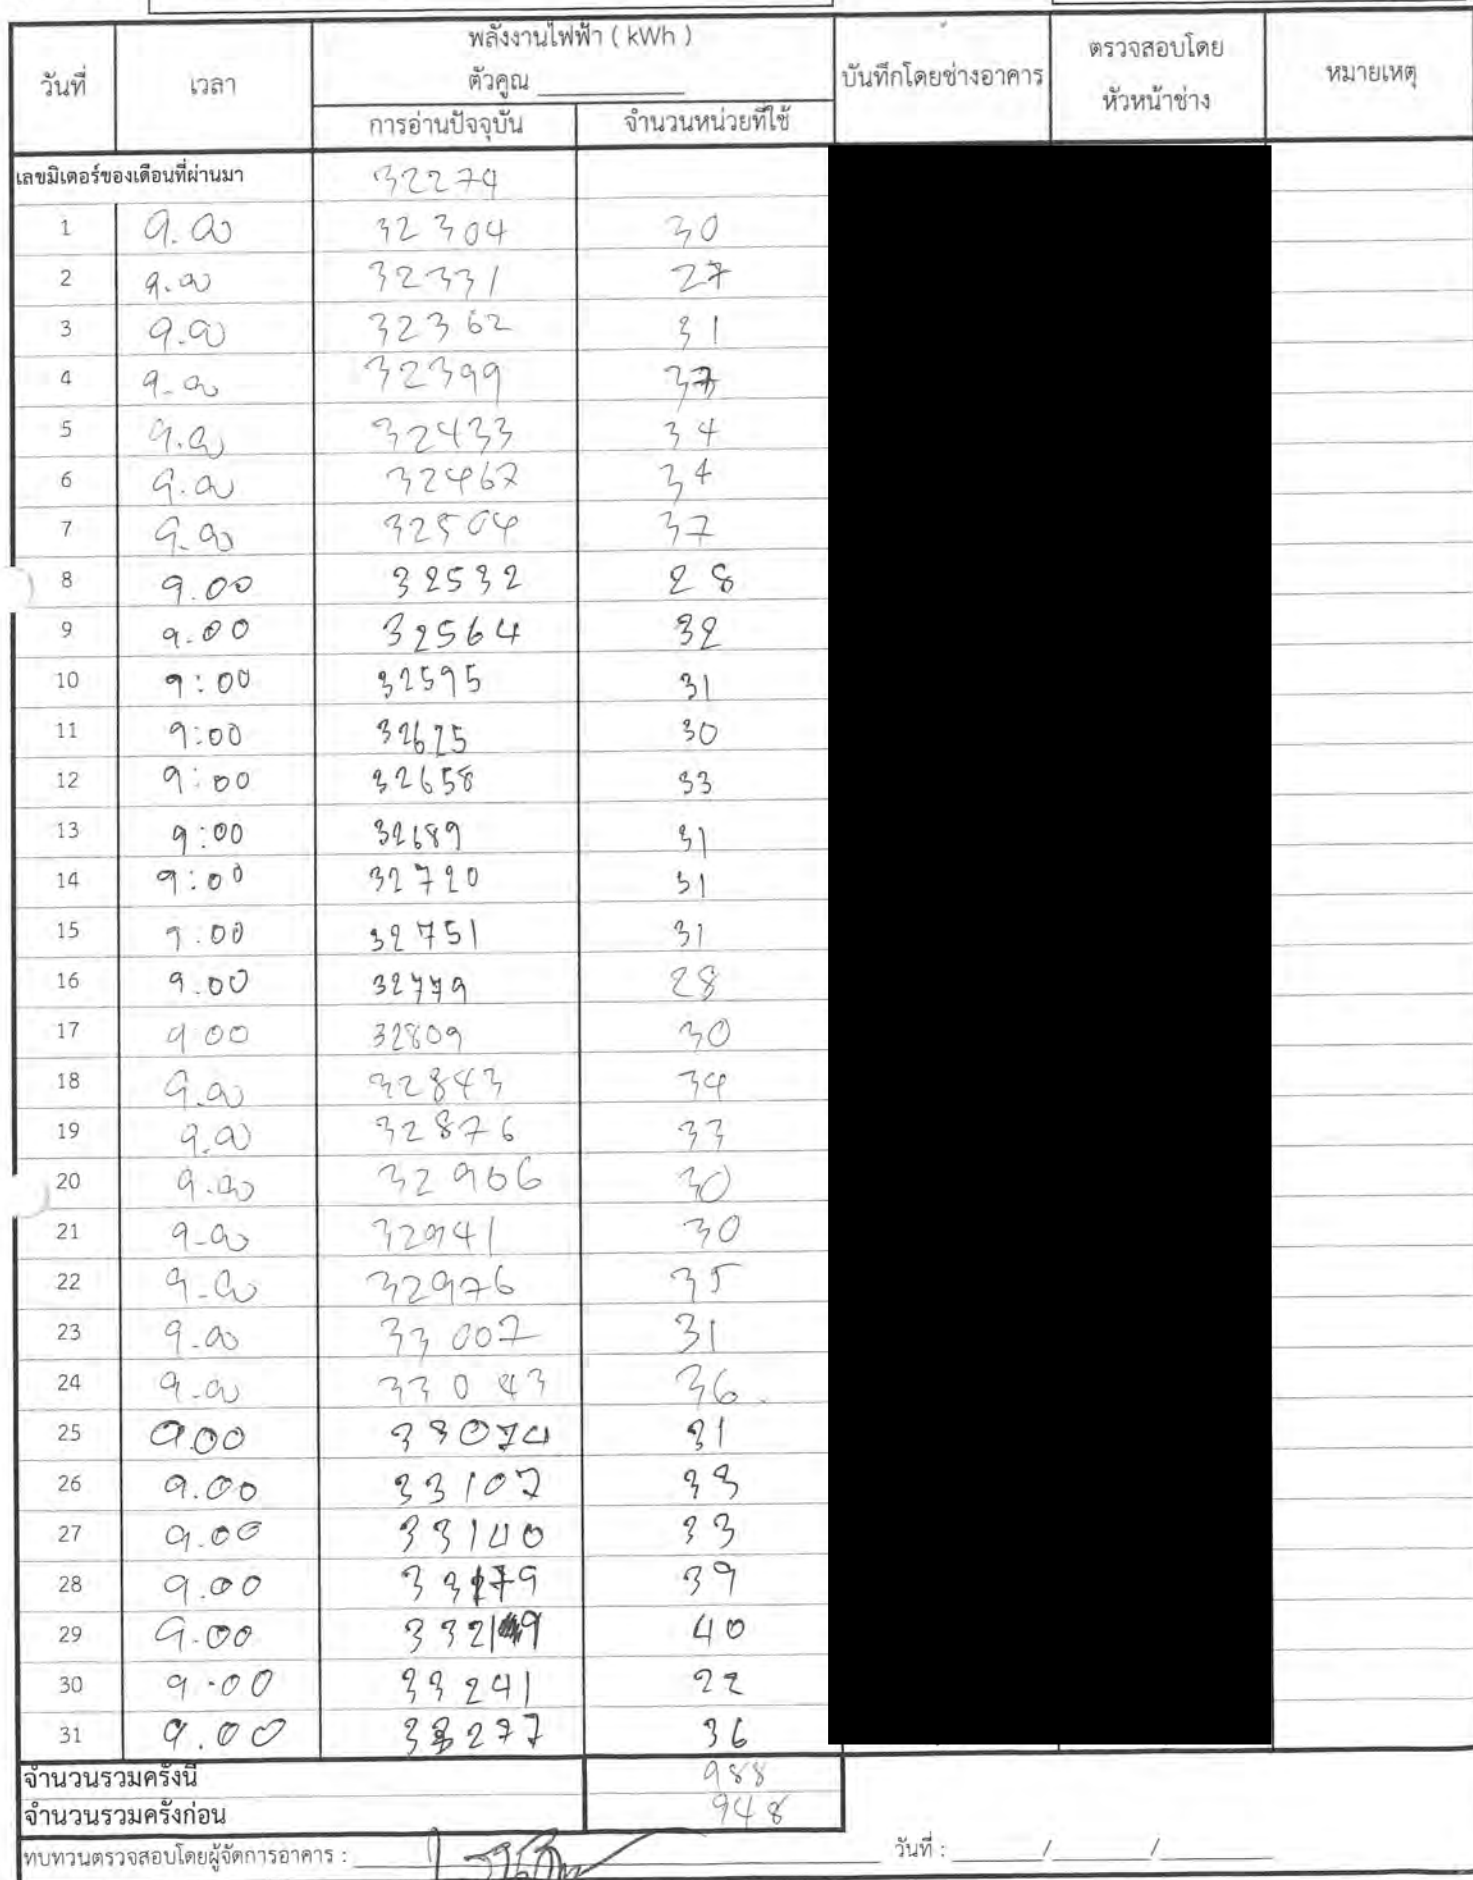 พลังงานไฟฟ้า ( kWh )
วันที่ เวลา ตัวคูณ ________ บันทึกโดยช่างอาคาร ตรวจสอบโดย หัวหน้าช่าง หมายเหตุ
การอ่านปัจจุบัน จำนวนหน่วยที่ใช้
เลขมิเตอร์ของเดือนที่ผ่านมา 32274
1 9.00 32304 30
2 9.00 32331 27
3 9.00 32362 31
4 9-00 32399 37
5 9.00 32433 34
6 9.00 32467 34
7 9-00 32504 37
8 9.00 32532 28
9 9.00 32564 32
10 9:00 32595 31
11 9:00 32625 30
12 9:00 32658 33
13 9:00 32689 31
14 9:00 32720 31
15 9:00 32751 31
16 9.00 32779 28
17 9 00 32809 30
18 9.00 32843 34
19 9.00 32876 33
20 9.00 32906 30
21 9-00 32941 30
22 9-00 32976 35
23 9-00 33007 31
24 9-00 33043 36
25 9.00 33074 31
26 9.00 33107 33
27 9.00 33140 33
28 9.00 33179 39
29 9.00 33219 40
30 9.00 33241 22
31 9.00 33277 36
จำนวนรวมครั้งนี้ 988
จำนวนรวมครั้งก่อน 948
ทบทวนตรวจสอบโดยผู้จัดการอาคาร : วันที่ : ______/______/______